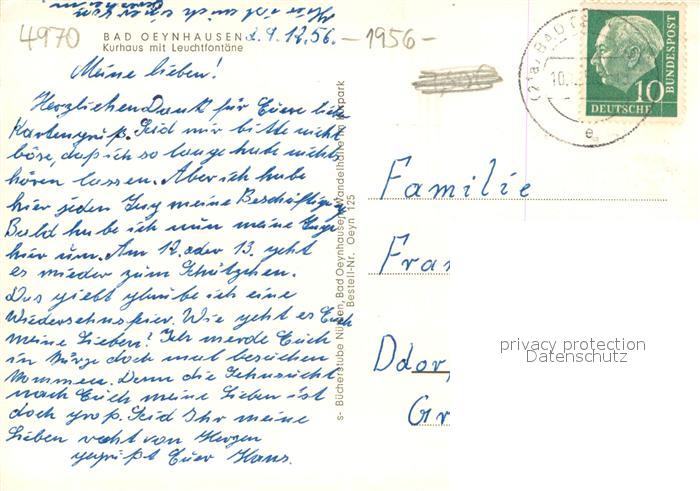 4970
BAD OEYNHAUSEN
Kurhaus mit Leuchtfontäne
d. 9.12.56. -1956-
Meine lieben!
Herzlichen Dank für Eure lb.
Kartengruß. Seid mir bitte nicht
böse, daß ich so lange habe nichts
hören lassen. Aber ich habe
hier jeden Tag meine Beschäftigung
Bald habe ich nun meine Tage
hier um. Am 12. oder 13. geht
es wieder zum Schätzchen.
Das giebt glaube ich eine
Wiedersehnsfeier. Wie geht es Euch
meine Lieben? Ich werde Euch
in Kürze doch mal besuchen
kommen. Denn die Sehnsucht
nach Euch meine Lieben ist
doch groß. Seid Ihr meine
Lieben recht von Herzen
gegrüßt Euer Hans.
s- Bücherstube
Bad Oeynhausen, Wandelhalle im Kurpark
Bestell-Nr. Oeyn 125
10
DEUTSCHE
BUNDESPOST
(21a) BAD
10.
e
Familie
Fra
Ddor,
Gr
privacy protection
Datenschutz